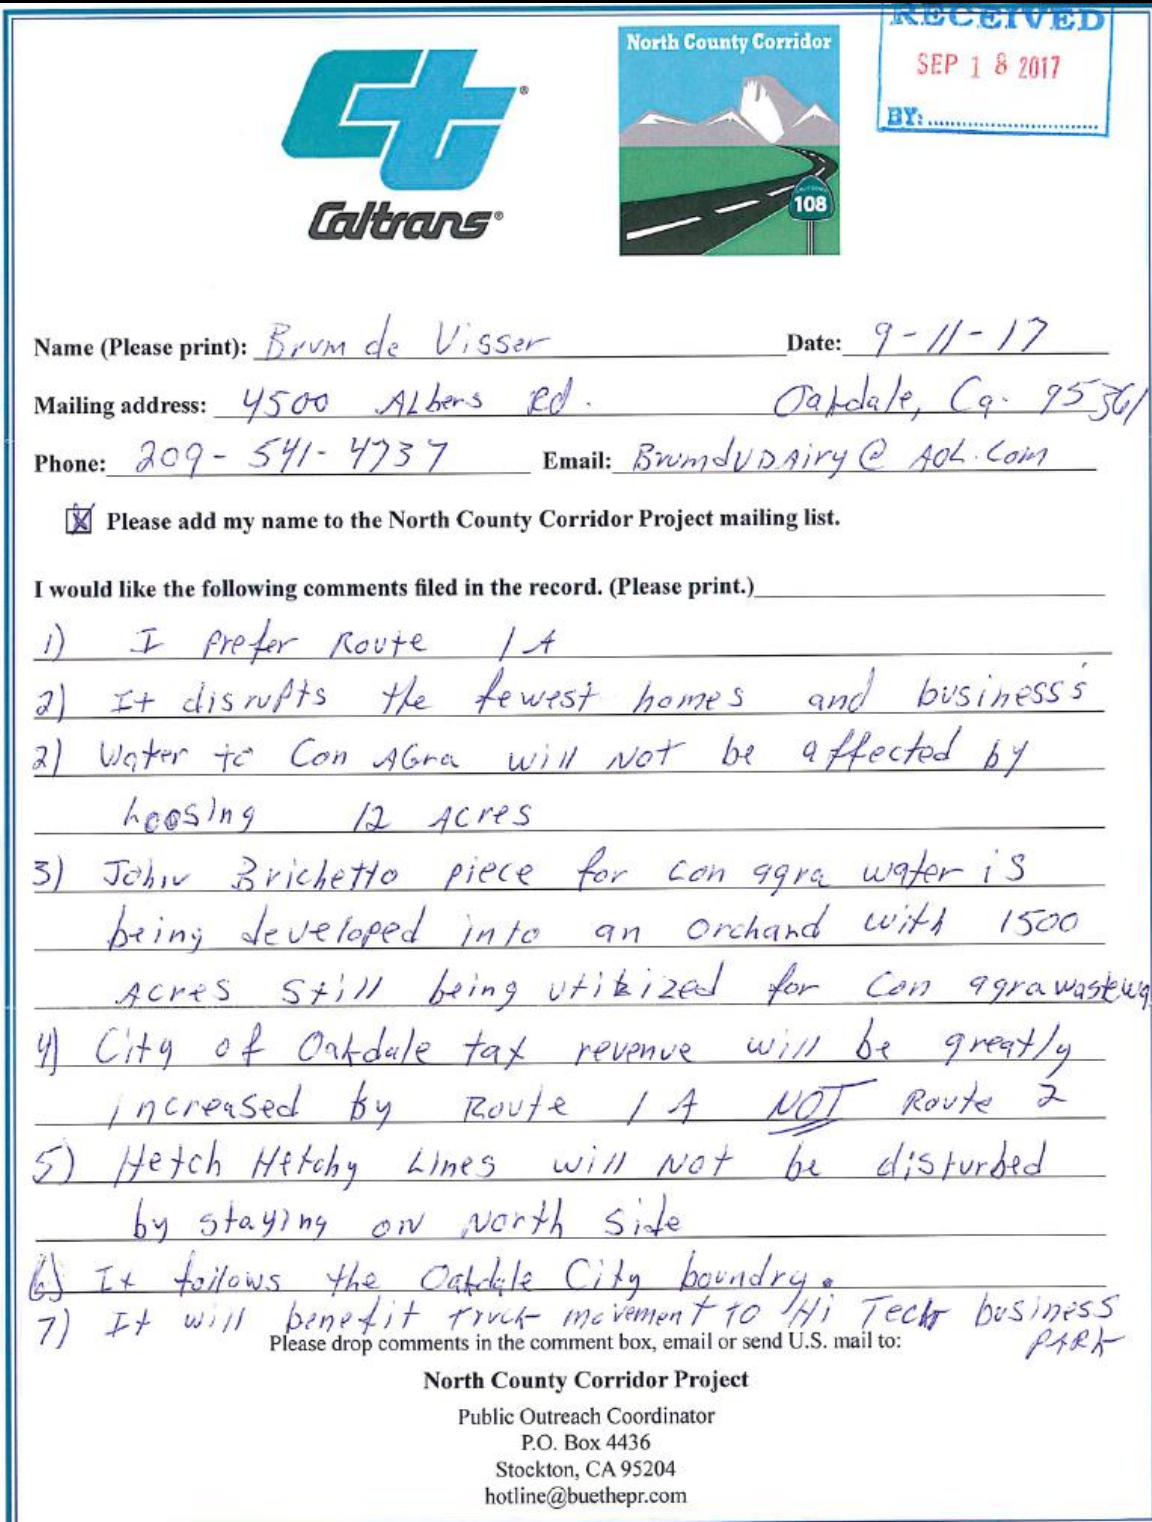 RECEIVED
SEP 18 2017
BY:
Caltrans®
North County Corridor
CALIFORNIA
108
Name (Please print): Brum de Visser Date: 9-11-17
Mailing address: 4500 Albers Rd. Oakdale, Ca. 95361
Phone: 209-541-4737 Email: BrumdVDAiry@AOL.Com
Please add my name to the North County Corridor Project mailing list.
I would like the following comments filed in the record. (Please print.)
1) I prefer Route 1A
2) It disrupts the fewest homes and business's
2) Water to Con AGra will Not be affected by
loosing 12 Acres
3) John Brichetto piece for con agra water is
being developed into an orchard with 1500
Acres Still being utilized for Con agra wastewa
4) City of Oakdale tax revenue will be greatly
increased by Route 1A NOT Route 2
5) Hetch Hetchy Lines will Not be disturbed
by staying on North Side
6) It follows the Oakdale City boundry.
7) It will benefit truck movement to Hi Tech business
PARK
Please drop comments in the comment box, email or send U.S. mail to:
North County Corridor Project
Public Outreach Coordinator
P.O. Box 4436
Stockton, CA 95204
hotline@buethepr.com